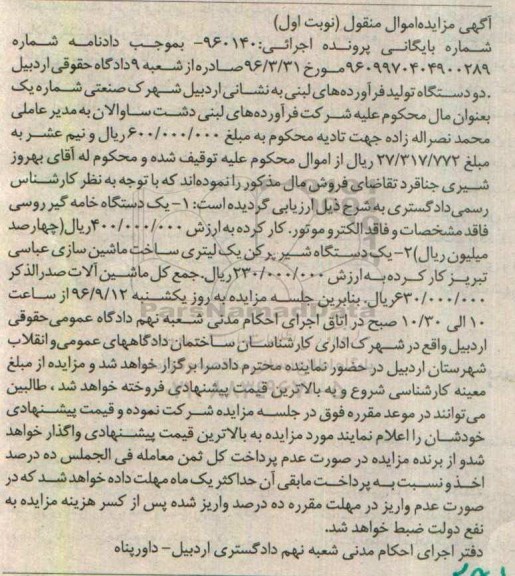 آگهی مزایده اموال منقول (نوبت اول)
شماره بایگانی پرونده اجرائی: ۹۶۰۱۴۰- بموجب دادنامه شماره
۹۶۰۹۹۷۰۴۰۴۹۰۰۲۸۹ مورخ ۹۶/۳/۳۱ صادره از شعبه ۹ دادگاه حقوقی اردبیل
.دو دستگاه تولید فرآورده‌های لبنی به نشانی اردبیل شهرک صنعتی شماره یک
بعنوان مال محکوم علیه شرکت فرآورده‌های لبنی دشت ساوالان به مدیر عاملی
محمد نصراله زاده جهت تادیه محکوم به مبلغ ۶۰۰/۰۰۰/۰۰۰ ریال و نیم عشر به
مبلغ ۲۷/۳۱۷/۷۷۲ ریال از اموال محکوم علیه توقیف شده و محکوم له آقای بهروز
شیری جناقرد تقاضای فروش مال مذکور را نموده‌اند که با توجه به نظر کارشناس
رسمی دادگستری به شرح ذیل ارزیابی گردیده است: ۱- یک دستگاه خامه گیر روسی
فاقد مشخصات و فاقد الکترو موتور. کار کرده به ارزش ۴۰۰/۰۰۰/۰۰۰ ریال(چهارصد
میلیون ریال) ۲- یک دستگاه شیر پر کن یک لیتری ساخت ماشین سازی عباسی
تبریز کار کرده به ارزش ۲۳۰/۰۰۰/۰۰۰ ریال. جمع کل ماشین آلات صدرالذکر
۶۳۰/۰۰۰/۰۰۰ ریال. بنابرین جلسه مزایده به روز یکشنبه ۹۶/۹/۱۲ از ساعت
۱۰ الی ۱۰/۳۰ صبح در اتاق اجرای احکام مدنی شعبه نهم دادگاه عمومی حقوقی
اردبیل واقع در شهرک اداری کارشناسان ساختمان دادگاههای عمومی و انقلاب
شهرستان اردبیل در حضور نماینده محترم دادسرا برگزار خواهد شد و مزایده از مبلغ
معینه کارشناسی شروع و به بالاترین قیمت پیشنهادی فروخته خواهد شد ، طالبین
می‌توانند در موعد مقرره فوق در جلسه مزایده شرکت نموده و قیمت پیشنهادی
خودشان را اعلام نمایند مورد مزایده به بالاترین قیمت پیشنهادی واگذار خواهد
شد و از برنده مزایده در صورت عدم پرداخت کل ثمن معامله فی الجملس ده درصد
اخذ و نسبت به پرداخت مابقی آن حداکثر یک ماه مهلت داده خواهد شد که در
صورت عدم واریز در مهلت مقرره ده درصد واریز شده پس از کسر هزینه مزایده به
نفع دولت ضبط خواهد شد.
دفتر اجرای احکام مدنی شعبه نهم دادگستری اردبیل- داورپناه